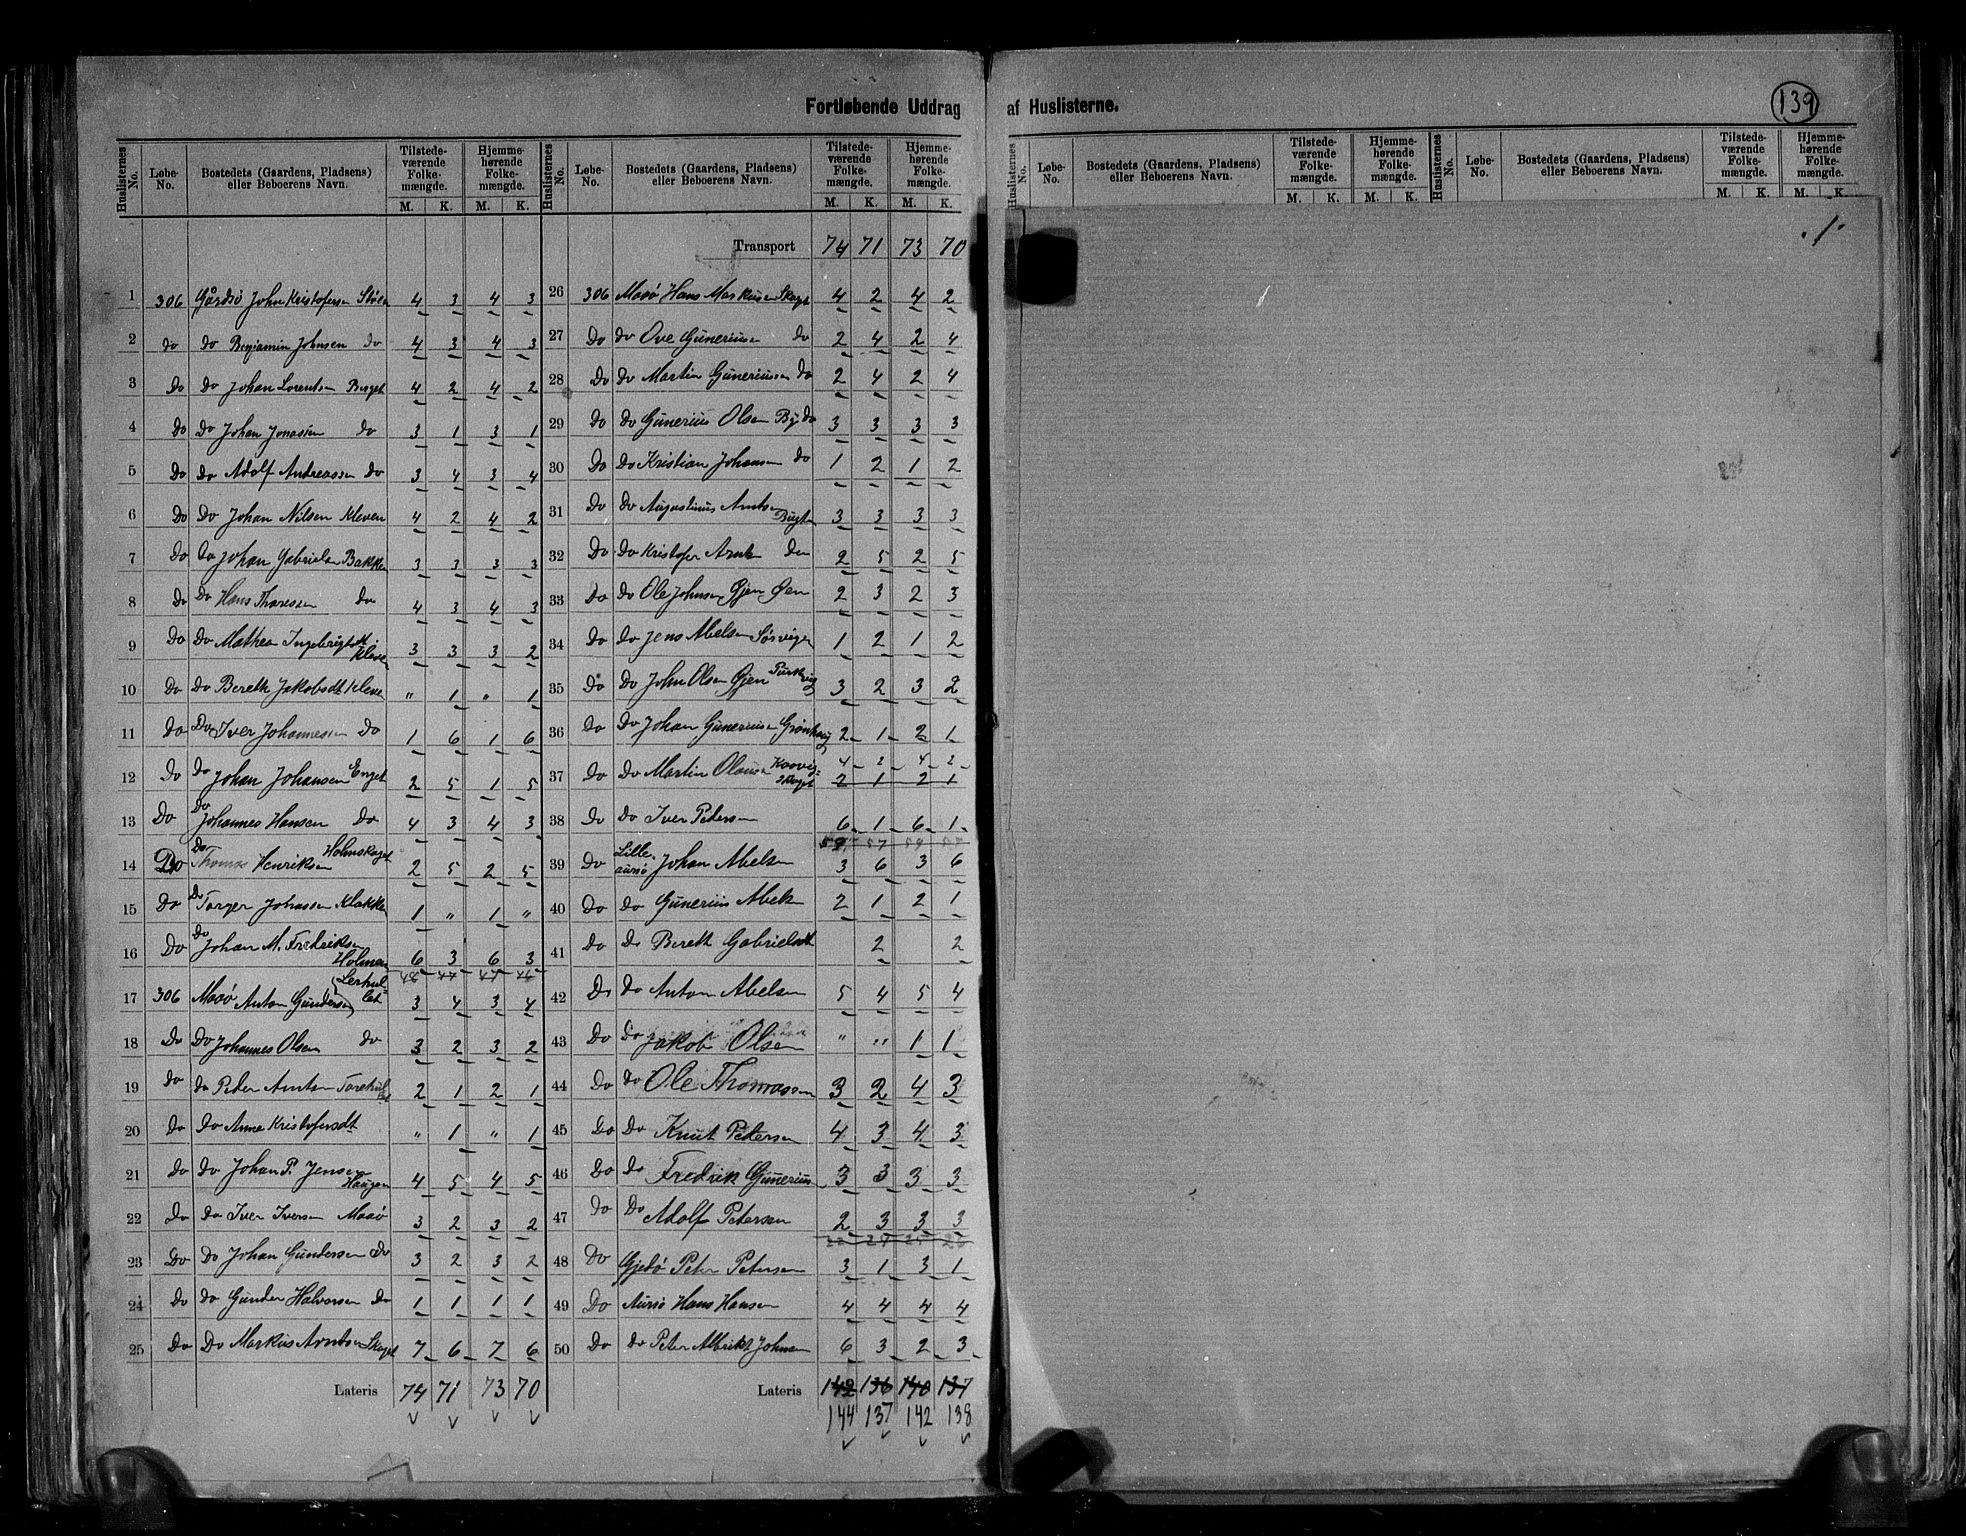 Fortløbende Uddrag af Huslisterne.
139
Huslisternes No. Løbe-No. Bostedets (Gaardens, Pladsens) eller Beboerens Navn. Tilstedeværende Folkemængde. M. K. Hjemmehørende Folkemængde. M. K.
1 306 Gårdsø John Kristofersen Støen 4 3 4 3
2 do do Benjamin Johnsen do 4 3 4 3
3 Do Do Johan Lorentsen Berget 4 2 4 2
4 Do Do Johan Jonassen do 3 1 3 1
5 Do Do Adolf Andreassen do 3 4 3 4
6 Do Do Johan Nilsen Kleven 4 2 4 2
7 Do Do Johan Gabrielsen Bakken 3 3 3 3
8 Do Do Hans Tharessen do 4 3 4 3
9 Do Do Mathea Ingebrigtsdt Kleven 3 3 3 2
10 Do Do Bereth Jakobsdt Kleven " 1 " 1
11 Do Do Iver Johannessen Do 1 6 1 6
12 Do Do Johan Johansen Enget 2 5 1 5
13 Do Do Johannes Hansen Do 4 3 4 3
14 Do Do Thomas Henriksen Holmskaget 2 5 2 5
15 Do Do Torger Johnssen Klakken 1 " 1 "
16 Do Do Johan M. Fredriksen Holmen 6 3 6 3
17 306 Maaø Anton Gundersen (Lerhullet) 3 4 3 4
18 Do Do Johannes Olsen do 3 2 3 2
19 do do Peter Arntsen 2 1 2 1
20 Do Do Anne Kristofersdt " 1 " 1
21 Do Do Johan P. Jensen Haugen 4 5 4 5
22 Do Do Iver Iversen Maaø 3 2 3 2
23 Do Do Johan Gundersen Do 3 2 3 2
24 Do Do Gunder Halvorsen Do 1 1 1 1
25 Do Do Markus Arntsen Skaget 7 6 7 6
Lateris 74 71 73 70
Huslisternes No. Løbe-No. Bostedets (Gaardens, Pladsens) eller Beboerens Navn. Tilstedeværende Folkemængde. M. K. Hjemmehørende Folkemængde. M. K.
Transport 74 71 73 70
26 306 Maaø Hans Markusen Skaget 4 2 4 2
27 Do do Ove Guneriusen do 2 4 2 4
28 Do Do Martin Guneriussen do 2 4 2 4
29 Do Do Gunerius Olsen By do 3 3 3 3
30 Do Do Kristian Johansen do 1 2 1 2
31 Do Do Augustinus Arntsen Bugten 3 3 3 3
32 Do Do Kristofer Arntsen 2 5 2 5
33 Do Do Ole Johnsen Øjen Øen 2 3 2 3
34 Do Do Jens Abelsen Sørvigen 1 2 1 2
35 Do Do John Olsen Øjen 3 2 3 2
36 Do Do Johan Guneriusen Grønhaug 2 1 2 1
37 Do Do Martin Olausen 4 2 4 2
2 1 2 1
38 Do Do Iver Petersen 6 1 6 1
39 Do Lille aursø Johan Abelsen 3 6 3 6
40 Do Do Gunerius Abelsen 2 1 2 1
41 Do Do Bereth Gabrielsdt 2 2
42 Do Do Anton Abelsen 5 4 5 4
43 Do Do Jakob Olsen " " 1 1
44 Do Do Ole Thomassen 3 2 4 3
45 Do Do Knut Petersen 4 3 4 3
46 Do Do Fredrik Gunerius 3 3 3 3
47 Do Do Adolf Petersen 2 3 3 3
48 Do Gjedø Peter Petersen 3 1 3 1
49 Do Aursø Hans Hansen 4 4 4 4
50 Do Do Peter Albrikt Johnsen 6 3 2 3
Lateris 142 136 140 137
144 137 142 138
Huslisternes No. Løbe-No. Bostedets (Gaardens, Pladsens) eller Beboerens Navn. Tilstedeværende Folkemængde. M. K. Hjemmehørende Folkemængde. M. K.
Huslisternes No. Løbe-No. Bostedets (Gaardens, Pladsens) eller Beboerens Navn. Tilstedeværende Folkemængde. M. K. Hjemmehørende Folkemængde. M. K.